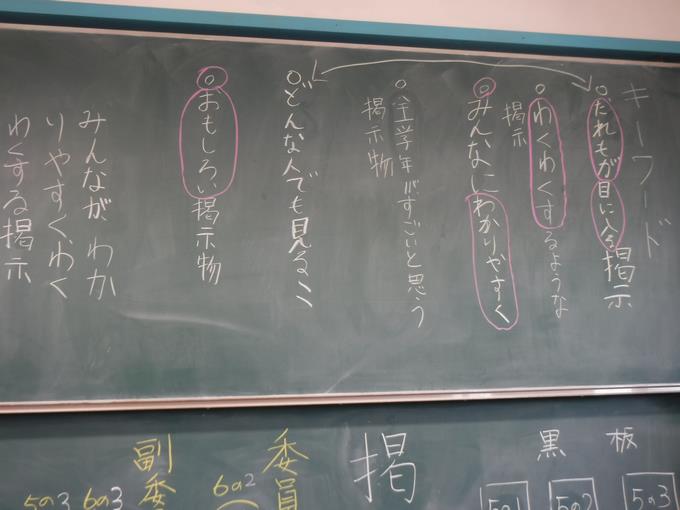 キーワード
○だれもが目に入る掲示
○わくわくするような
掲示
◎みんなにわかりやすく
○全学年がすごいと思う
掲示物
○どんな人でも見る
◎おもしろい掲示物
みんなが、わか
りやすく、わく
わくする掲示
黒板
5の3
5の2
5の1
掲
委員
6の2
副委
6の3
5の3